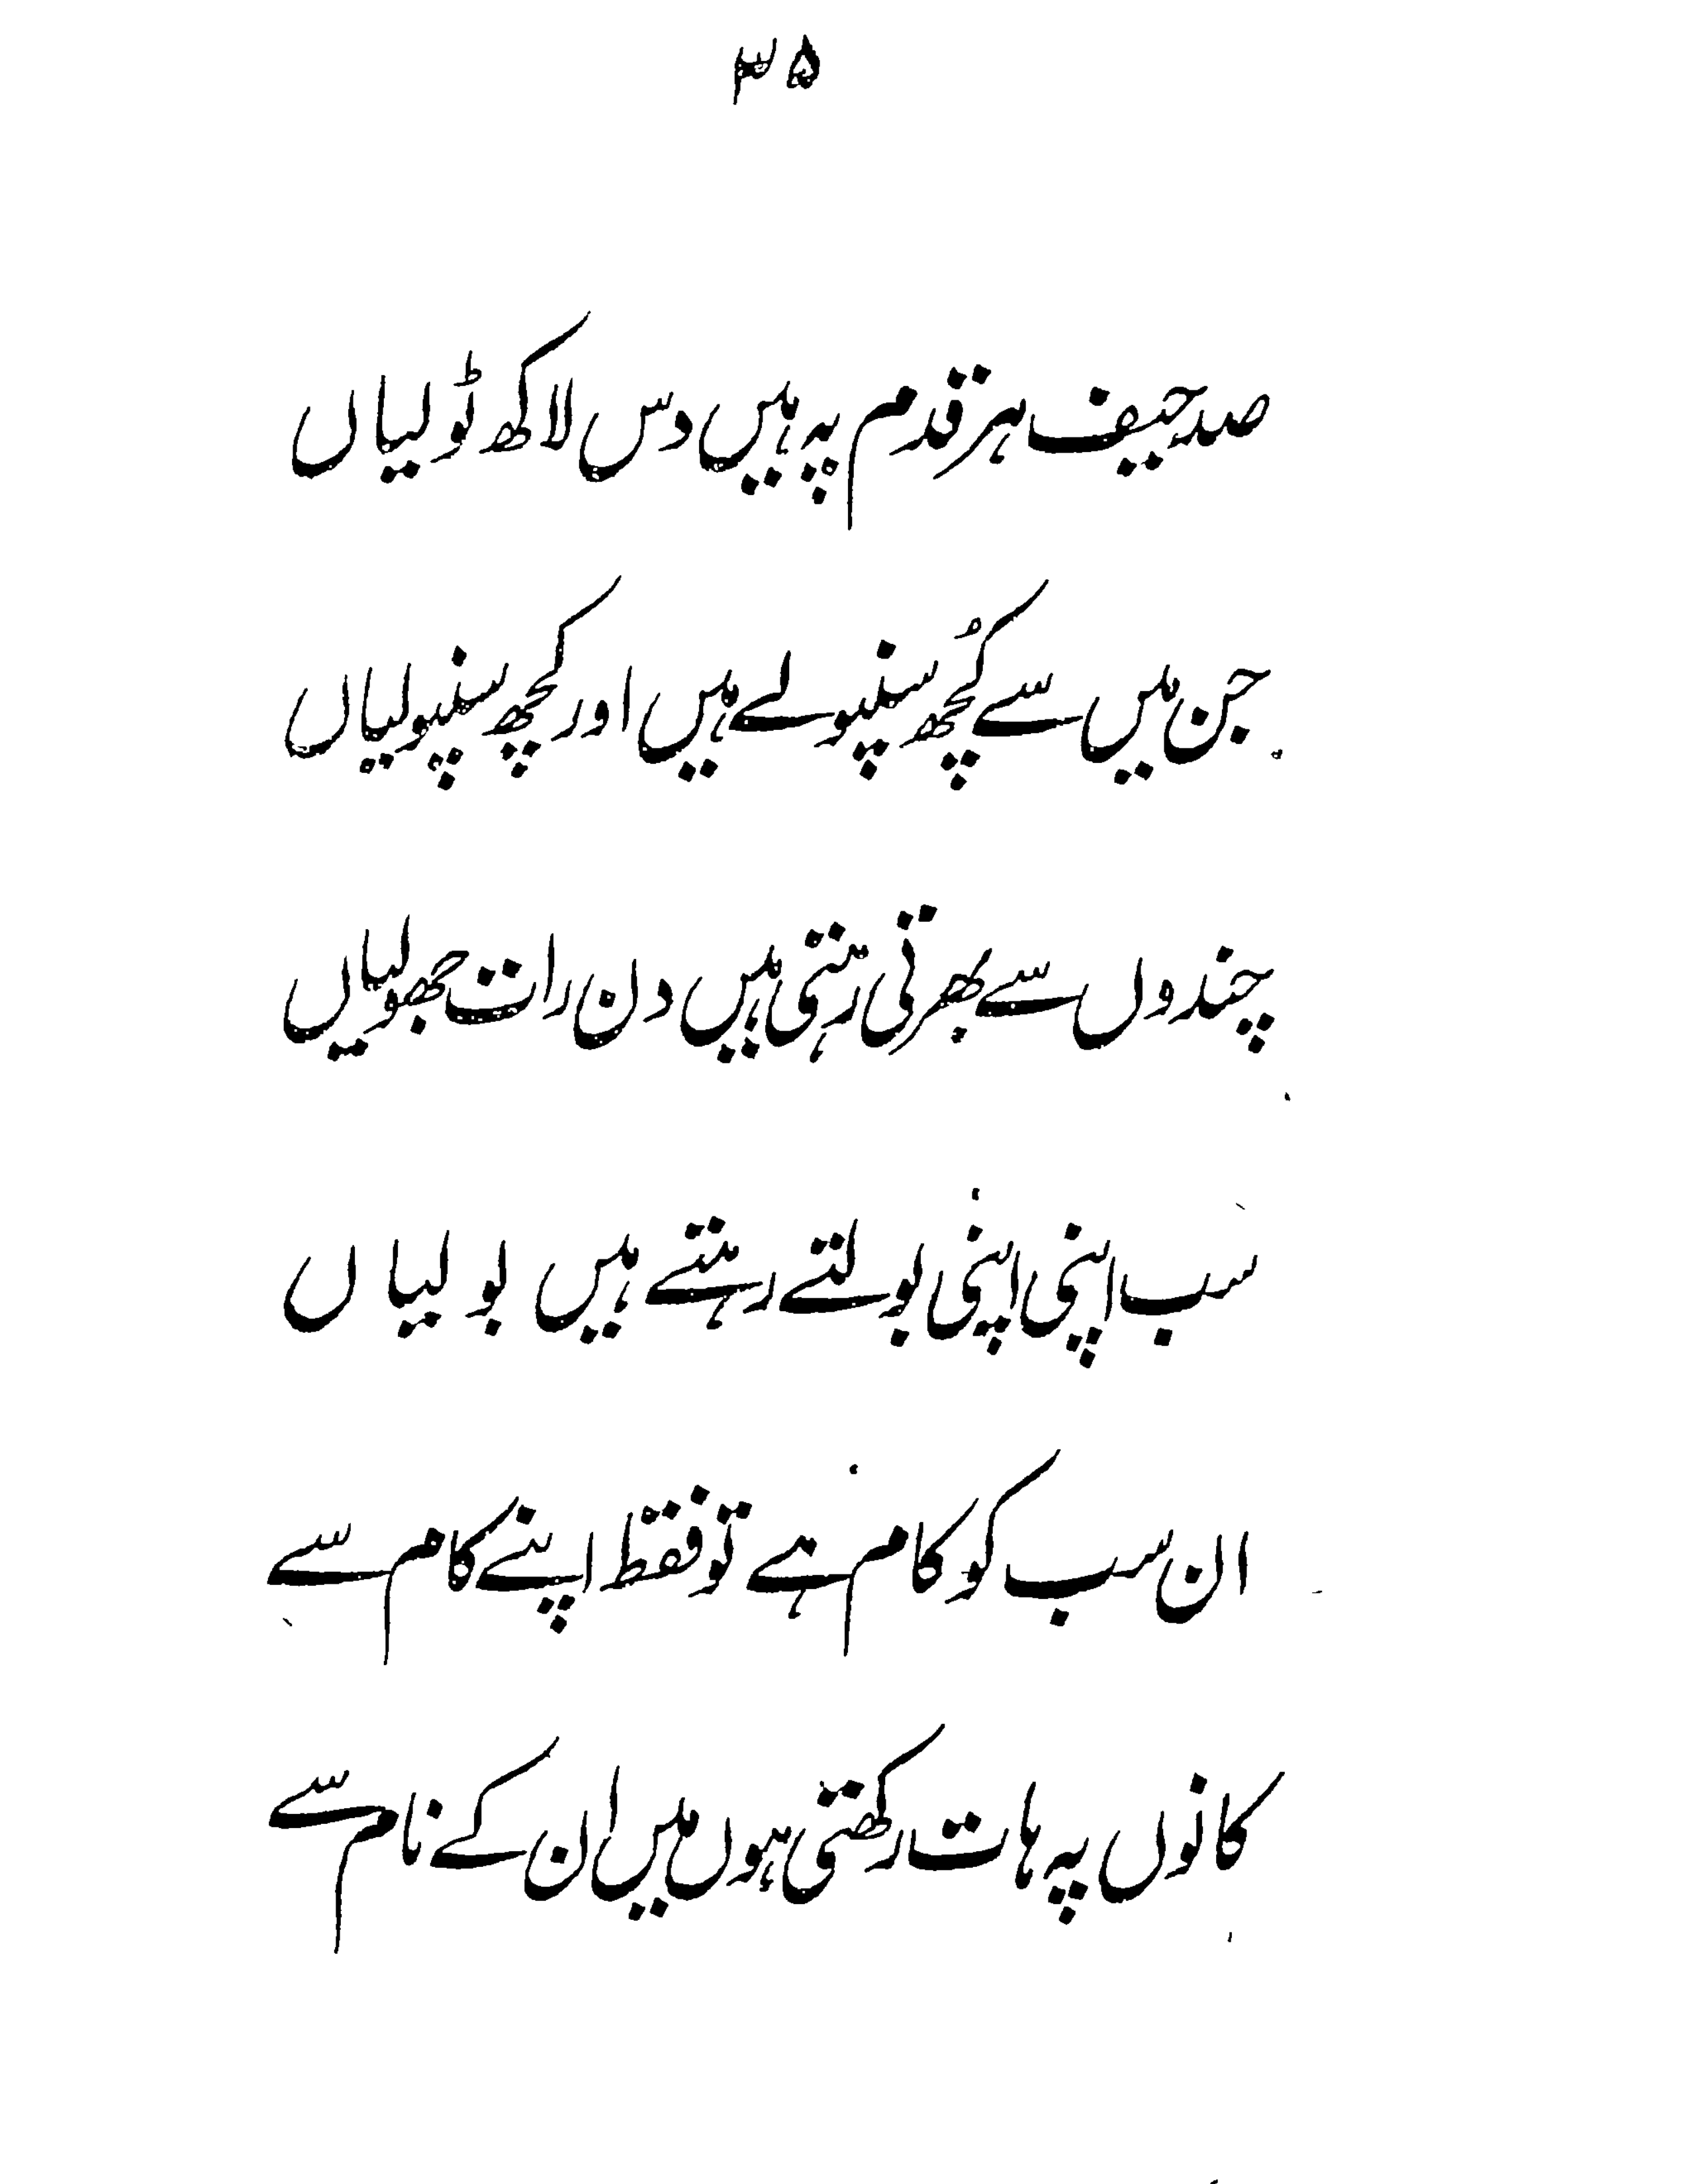 ۳۵
صد حیف ہر قدم پہ ہیں دس لاکھ ٹولیاں
جن میں سے کُچھ سنپولے ہیں اور کچھ سنپولیاں
چندوں سے بھرتی رہتی ہیں دن رات جھولیاں
سب اپنی اپنی بولتے رہتے ہیں بولیاں
ان سب کو کام ہے تو فقط اپنے کام سے
کانوں پہ ہات رکھتی ہوں میں ان کے نام سے